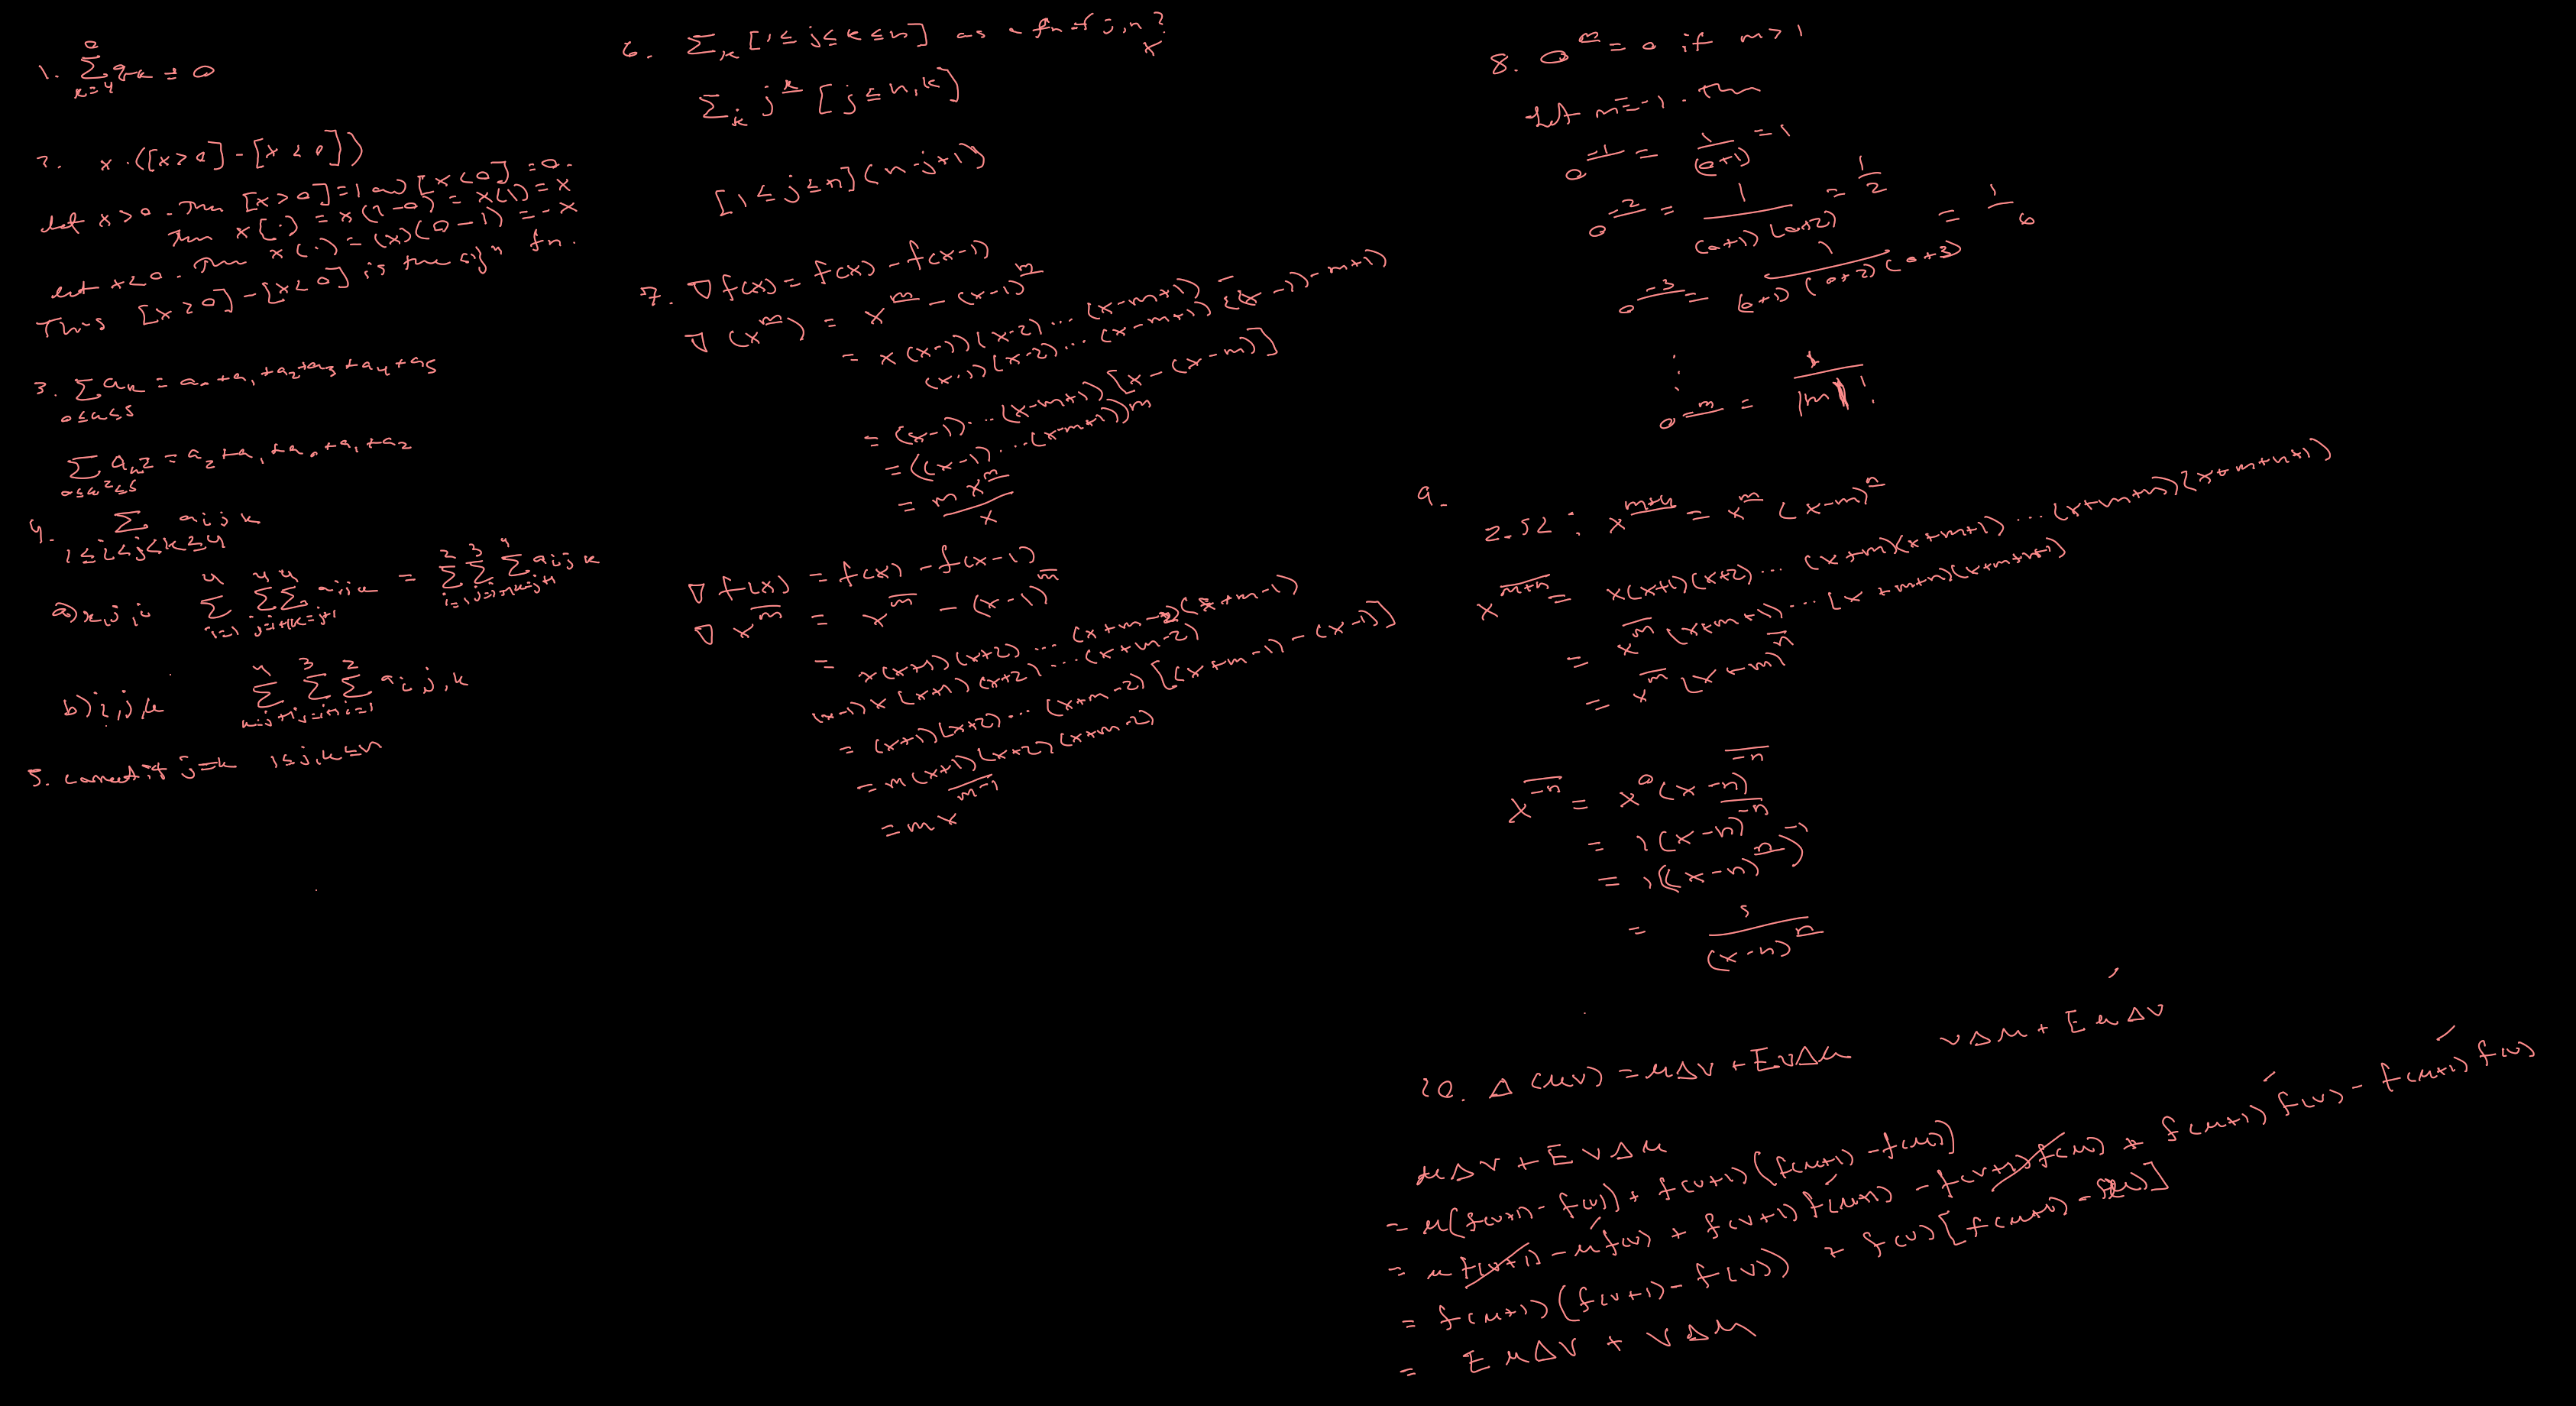 1. \sum_{k=4}^{0} q_k = 0
2. x \cdot ([x>0] - [x<0])
Let x>0. Then [x>0]=1 and [x<0]=0.
Then x[\cdot] = x(1-0) = x(1) = x
Let x<0. Then x(\cdot) = (x)(0-1) = -x
Thus [x>0] - [x<0] is the sign fn.
3. \sum_{0≤k≤5} a_k = a_0+a_1+a_2+a_3+a_4+a_5
\sum_{0≤k^2≤5} a_{k^2} = a_2+a_1+a_0+a_1+a_2
4. \sum_{1≤i<j<k≤4} a_{ijk}
a) k,j,i \sum_{i=1}^{4} \sum_{j=i+1}^{4} \sum_{k=j+1}^{4} a_{ijk} = \sum_{i=1}^{2} \sum_{j=i+1}^{3} \sum_{k=j+1}^{4} a_{ijk}
b) i,j,k \sum_{k=j+1}^{4} \sum_{j=i+1}^{3} \sum_{i=1}^{2} a_{i,j,k}
5. correct if j=k 1≤j,k≤n
6. \sum_k [1≤j≤k≤n] as a fn of j,n?
x
\sum_k j^k [j≤n,k]
[1≤j≤n](n-j+1)
7. ∇f(x) = f(x) - f(x-1)
∇(x^{\underline{m}}) = x^{\underline{m}} - (x-1)^{\underline{m}}
= x(x-1)(x-2)...(x-m+1) -
(x-1)(x-2)...(x-m+1)((x-1)-m+1)
= (x-1)...(x-m+1)[x-(x-m)]
= ((x-1)...(x-m+1))m
= \frac{m x^{\underline{m}}}{x}
∇f(x) = f(x) - f(x-1)
∇x^{\overline{m}} = x^{\overline{m}} - (x-1)^{\overline{m}}
= x(x+1)(x+2)...(x+m-2)(x+m-1)
(x-1)x(x+1)(x+2)...(x+m-2)
= (x+1)(x+2)...(x+m-2)[(x+m-1)-(x-1)]
= m(x+1)(x+2)(x+m-2)
= mx^{\overline{m-1}}
8. 0^{\underline{m}} = 0 if m>1
Let m=-1. Then
0^{\underline{-1}} = \frac{1}{(0+1)} = 1
0^{\underline{-2}} = \frac{1}{(0+1)(0+2)} = \frac{1}{2}
0^{\underline{-3}} = \frac{1}{(0+1)(0+2)(0+3)} = \frac{1}{6}
⋮
0^{\underline{-m}} = \frac{1}{|m|!}
9.
2.52: x^{\underline{m+n}} = x^{\underline{m}}(x-m)^{\underline{n}}
x^{\overline{m+n}} = x(x+1)(x+2)...(x+m)(x+m+1)...(x+m+n)(x+m+n+1)
= x^{\overline{m}}(x+m+1)...(x+m+n)(x+m+n+1)
= x^{\overline{m}}(x+m)^{\overline{n}}
x^{\overline{-n}} = x^0(x-n)^{\overline{-n}}
= 1(x-n)^{\overline{-n}}
= 1((x-n)^{\underline{n}})^{-1}
= \frac{1}{(x-n)^{\underline{n}}}
10. Δ(uv) = uΔv + EvΔu vΔu + EuΔv
uΔv + EvΔu
= u(f(v+1)-f(v)) + f(v+1)(f(u+1)-f(u))
= uf(v+1) - uf(v) + f(v+1)f(u+1) - f(v+1)f(u) + f(u+1)f(v) - f(u+1)f(v)
= f(u+1)(f(v+1)-f(v)) + f(v)[f(u+1)-f(u)]
= EuΔv + vΔu